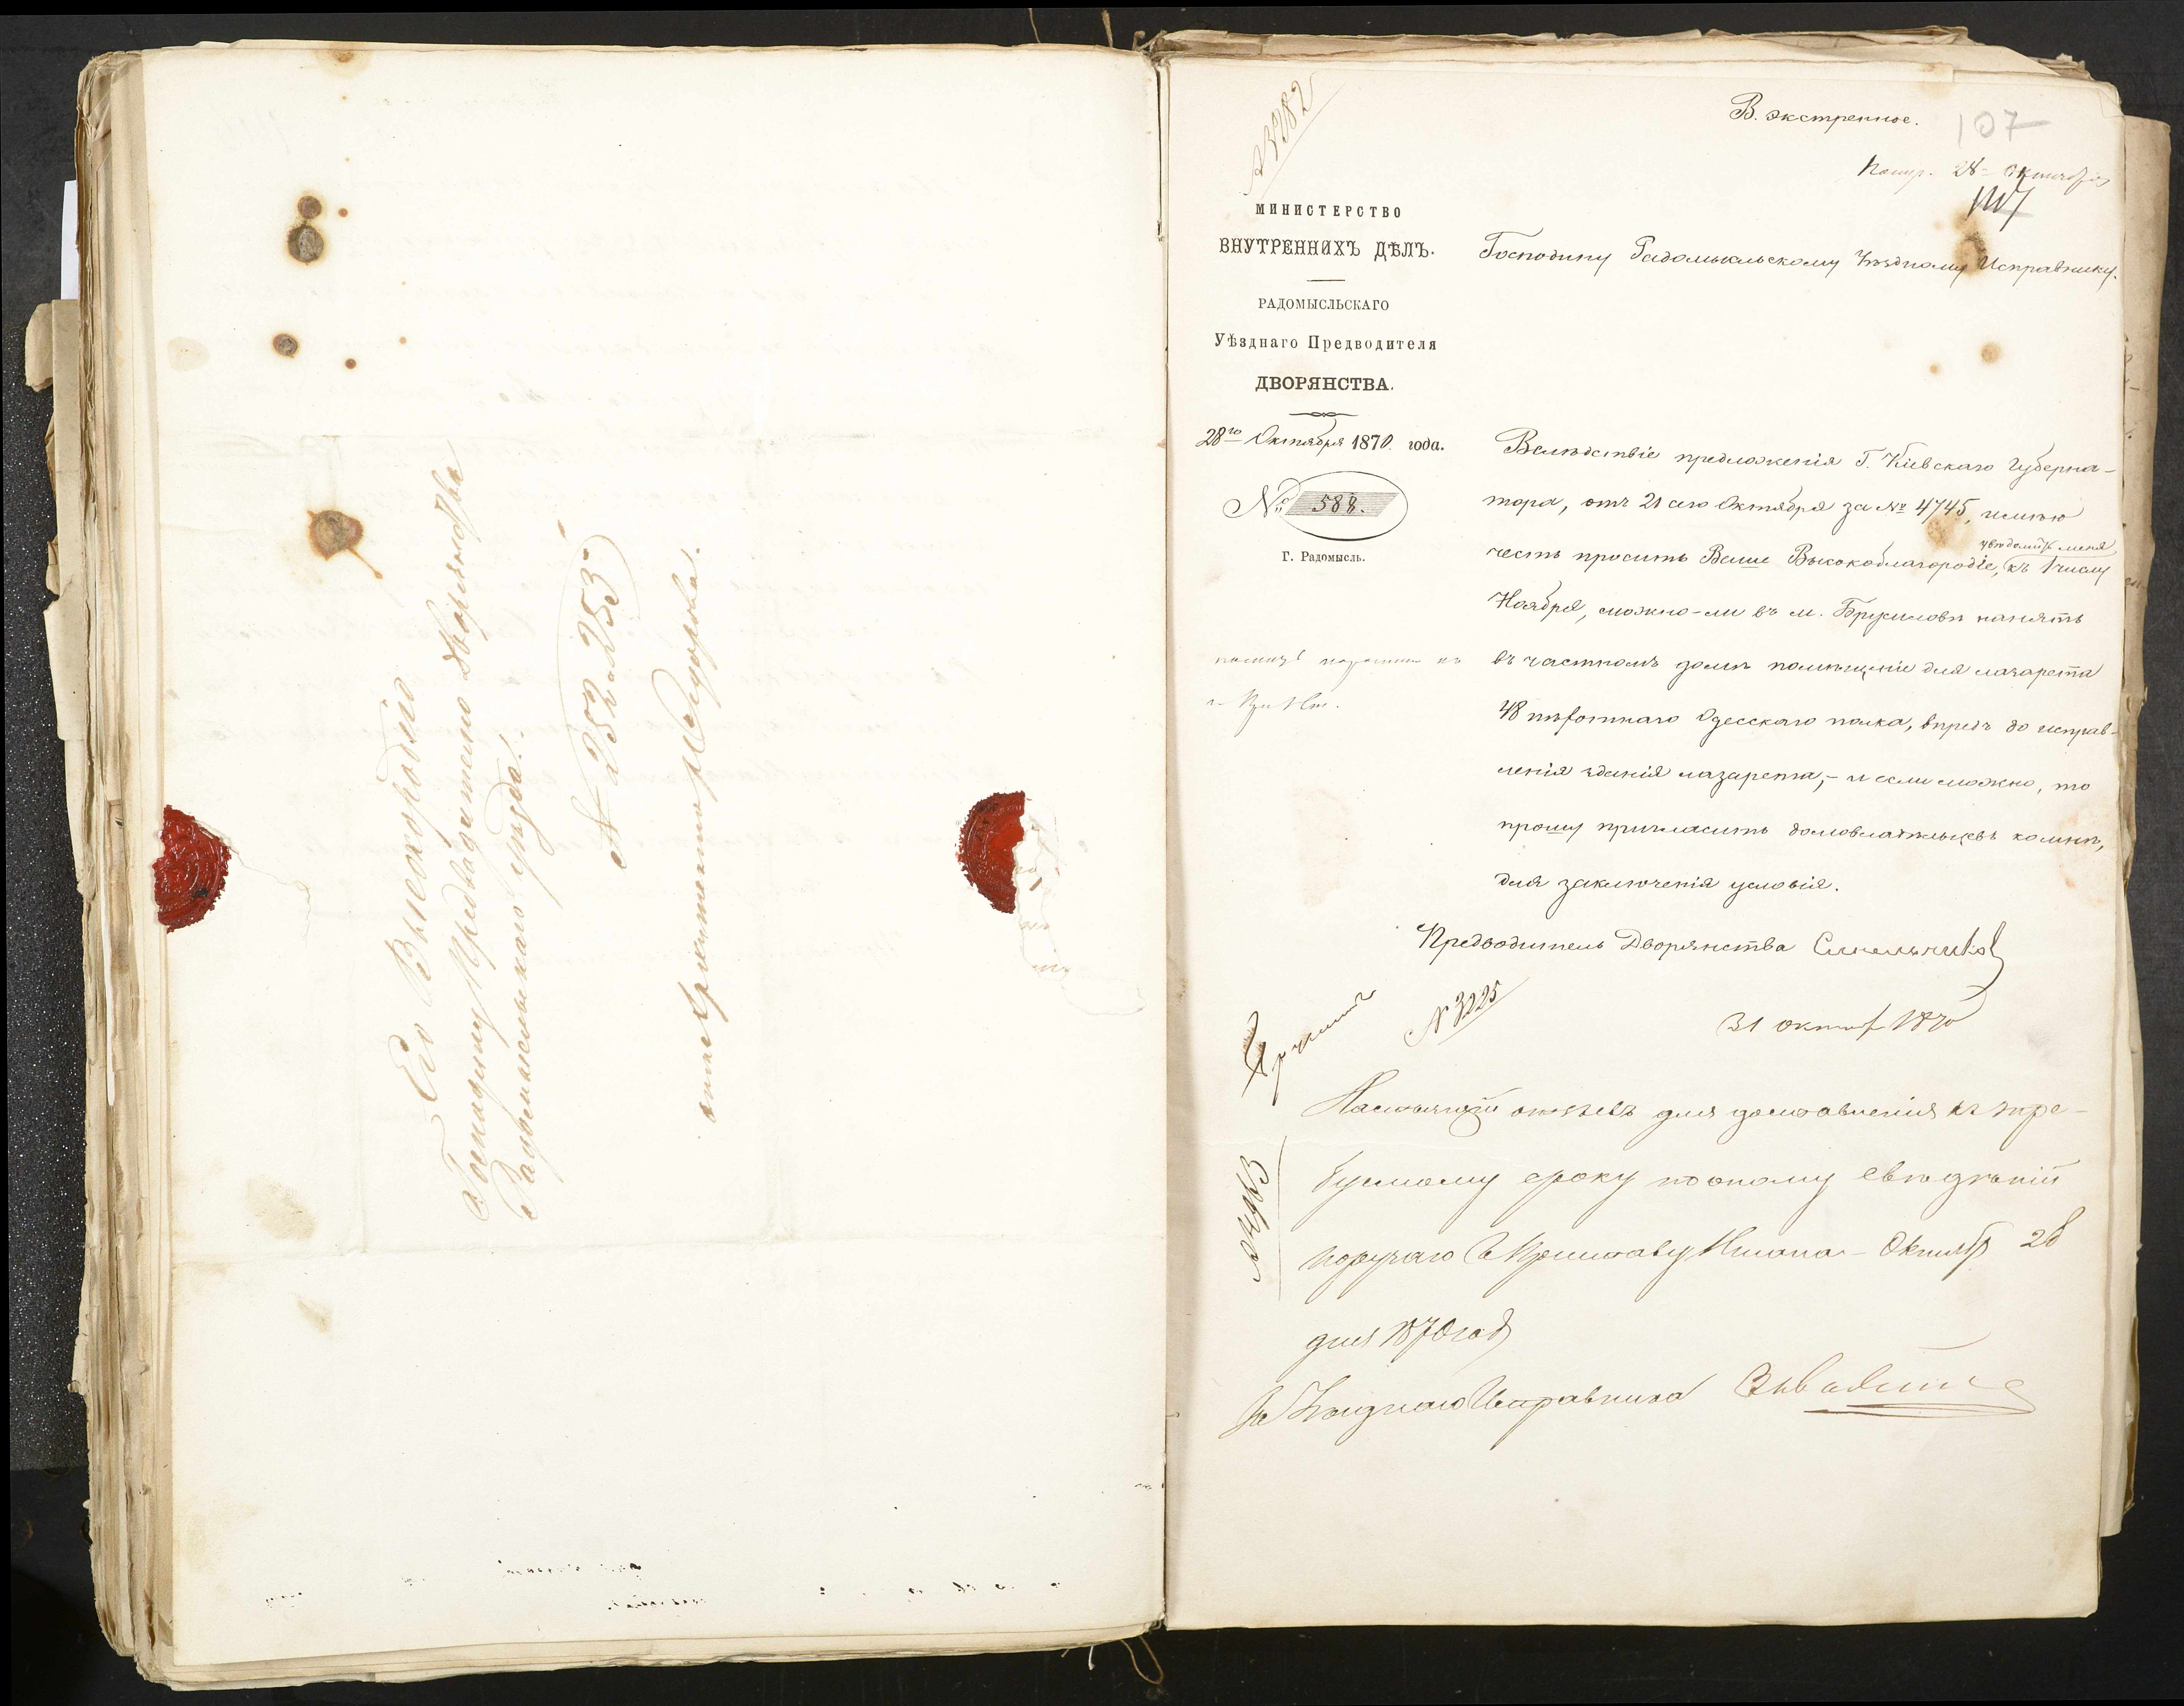 Его Высокородію
Господину Предводителю Дворянства
Радомысльскаго уѣзда.
№ 252 и 253
отъ Архитектора Федорова.
В. экстренное.
107
№ 3182
Получ. 28 Октября
107
МИНИСТЕРСТВО
ВНУТРЕННИХЪ ДѢЛЪ.
РАДОМЫСЛЬСКАГО
Уѣзднаго Предводителя
ДВОРЯНСТВА.
28го Октября 1870 года.
№ 588.
Г. Радомысль.
Господину Радомысльскому Уѣздному Исправнику.
Вслѣдствіе предложенія Г. Кіевскаго Губерна-
тора, отъ 21 сего Октября за № 4745, имѣю
честь просить Ваше Высокоблагородіе, увѣдомить меня къ 1 числу
Ноября, можно-ли въ м. Брусиловѣ нанять
въ частномъ домѣ помѣщеніе для лазарета
48 пѣхотнаго Одесскаго полка, впредь до исправ-
ленія зданія лазарета,- и если можно, то
прошу пригласить домовладѣльцевъ ко мнѣ,
для заключенія условія.
Предводитель Дворянства
№ 3225
31 октяб 1870
Настоящій отзывъ для доставленія къ тре-
буемому сроку по оному свѣдѣній
поручаю Приставу Стана Октября 28
дня 1870 год
За Уѣзднаго Исправника